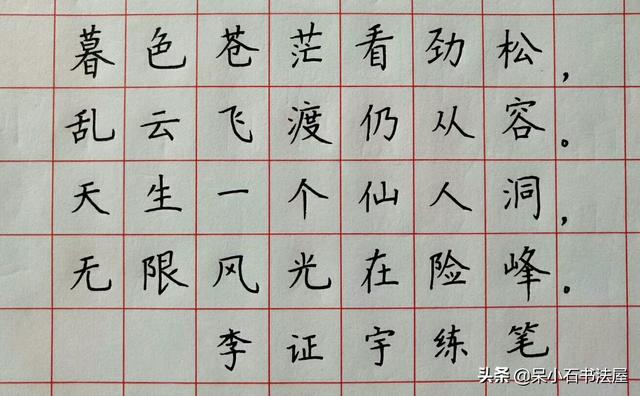 暮色苍茫看劲松，
乱云飞渡仍从容。
天生一个仙人洞，
无限风光在险峰。
李证宇练笔
头条@呆小石书法屋